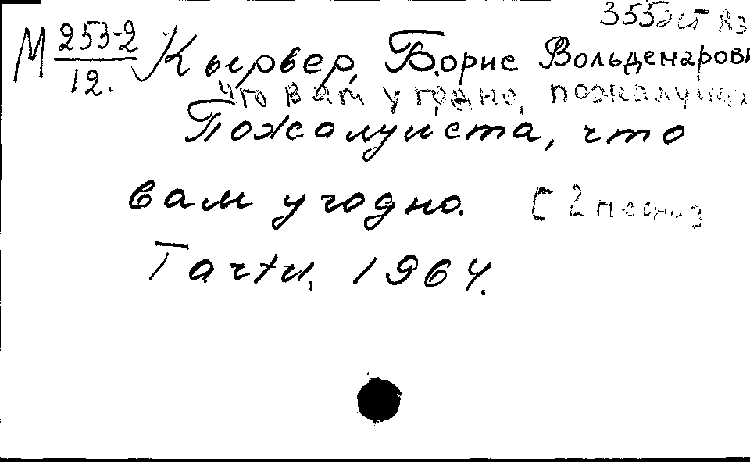 355 эст яз
М 253-2/12. Кырвер, Борис Вольдемарови
Что вам угодно, пожалуйста
Пожалуйста, что
вам угодно. С 2
Tartu, 1964.